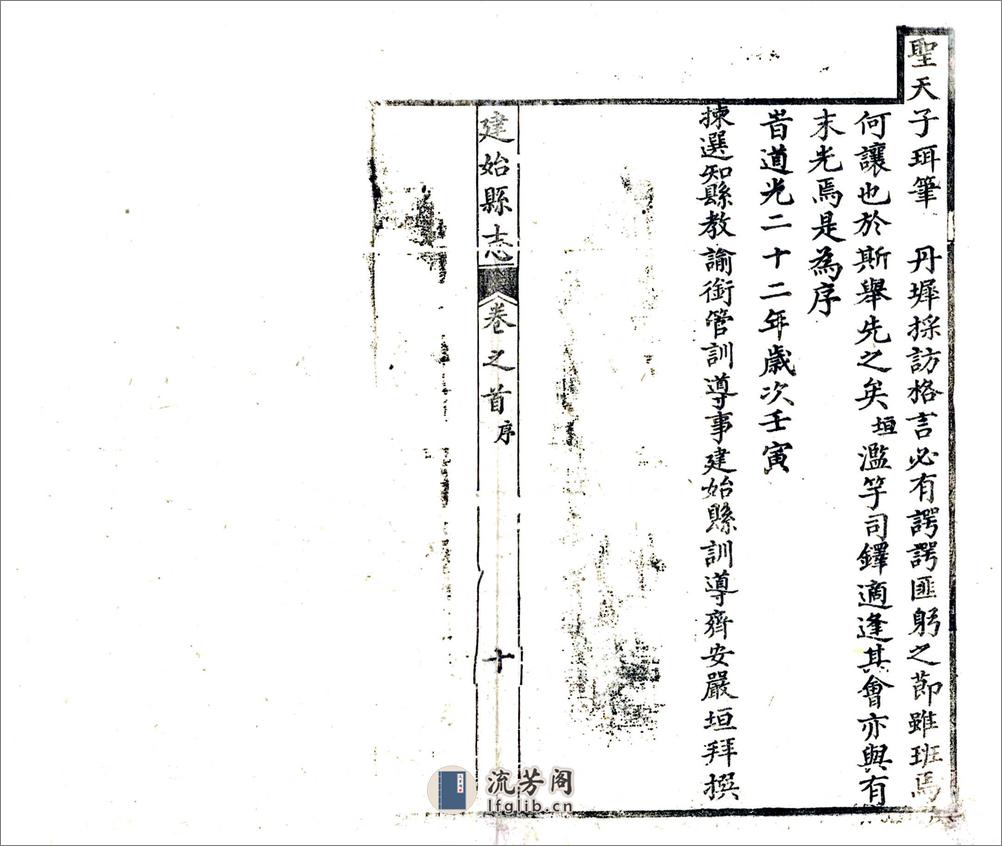 聖天子珥筆　丹墀採訪格言必有諤諤匪躬之節雖班馬
何讓也於斯舉先之矣垣濫竽司鐸適逢其會亦與有
末光焉是為序
旹道光二十二年歲次壬寅
揀選知縣教諭銜管訓導事建始縣訓導齊安嚴垣拜撰
建始縣志
卷之首
序
十
流芳阁
lfglib.cn